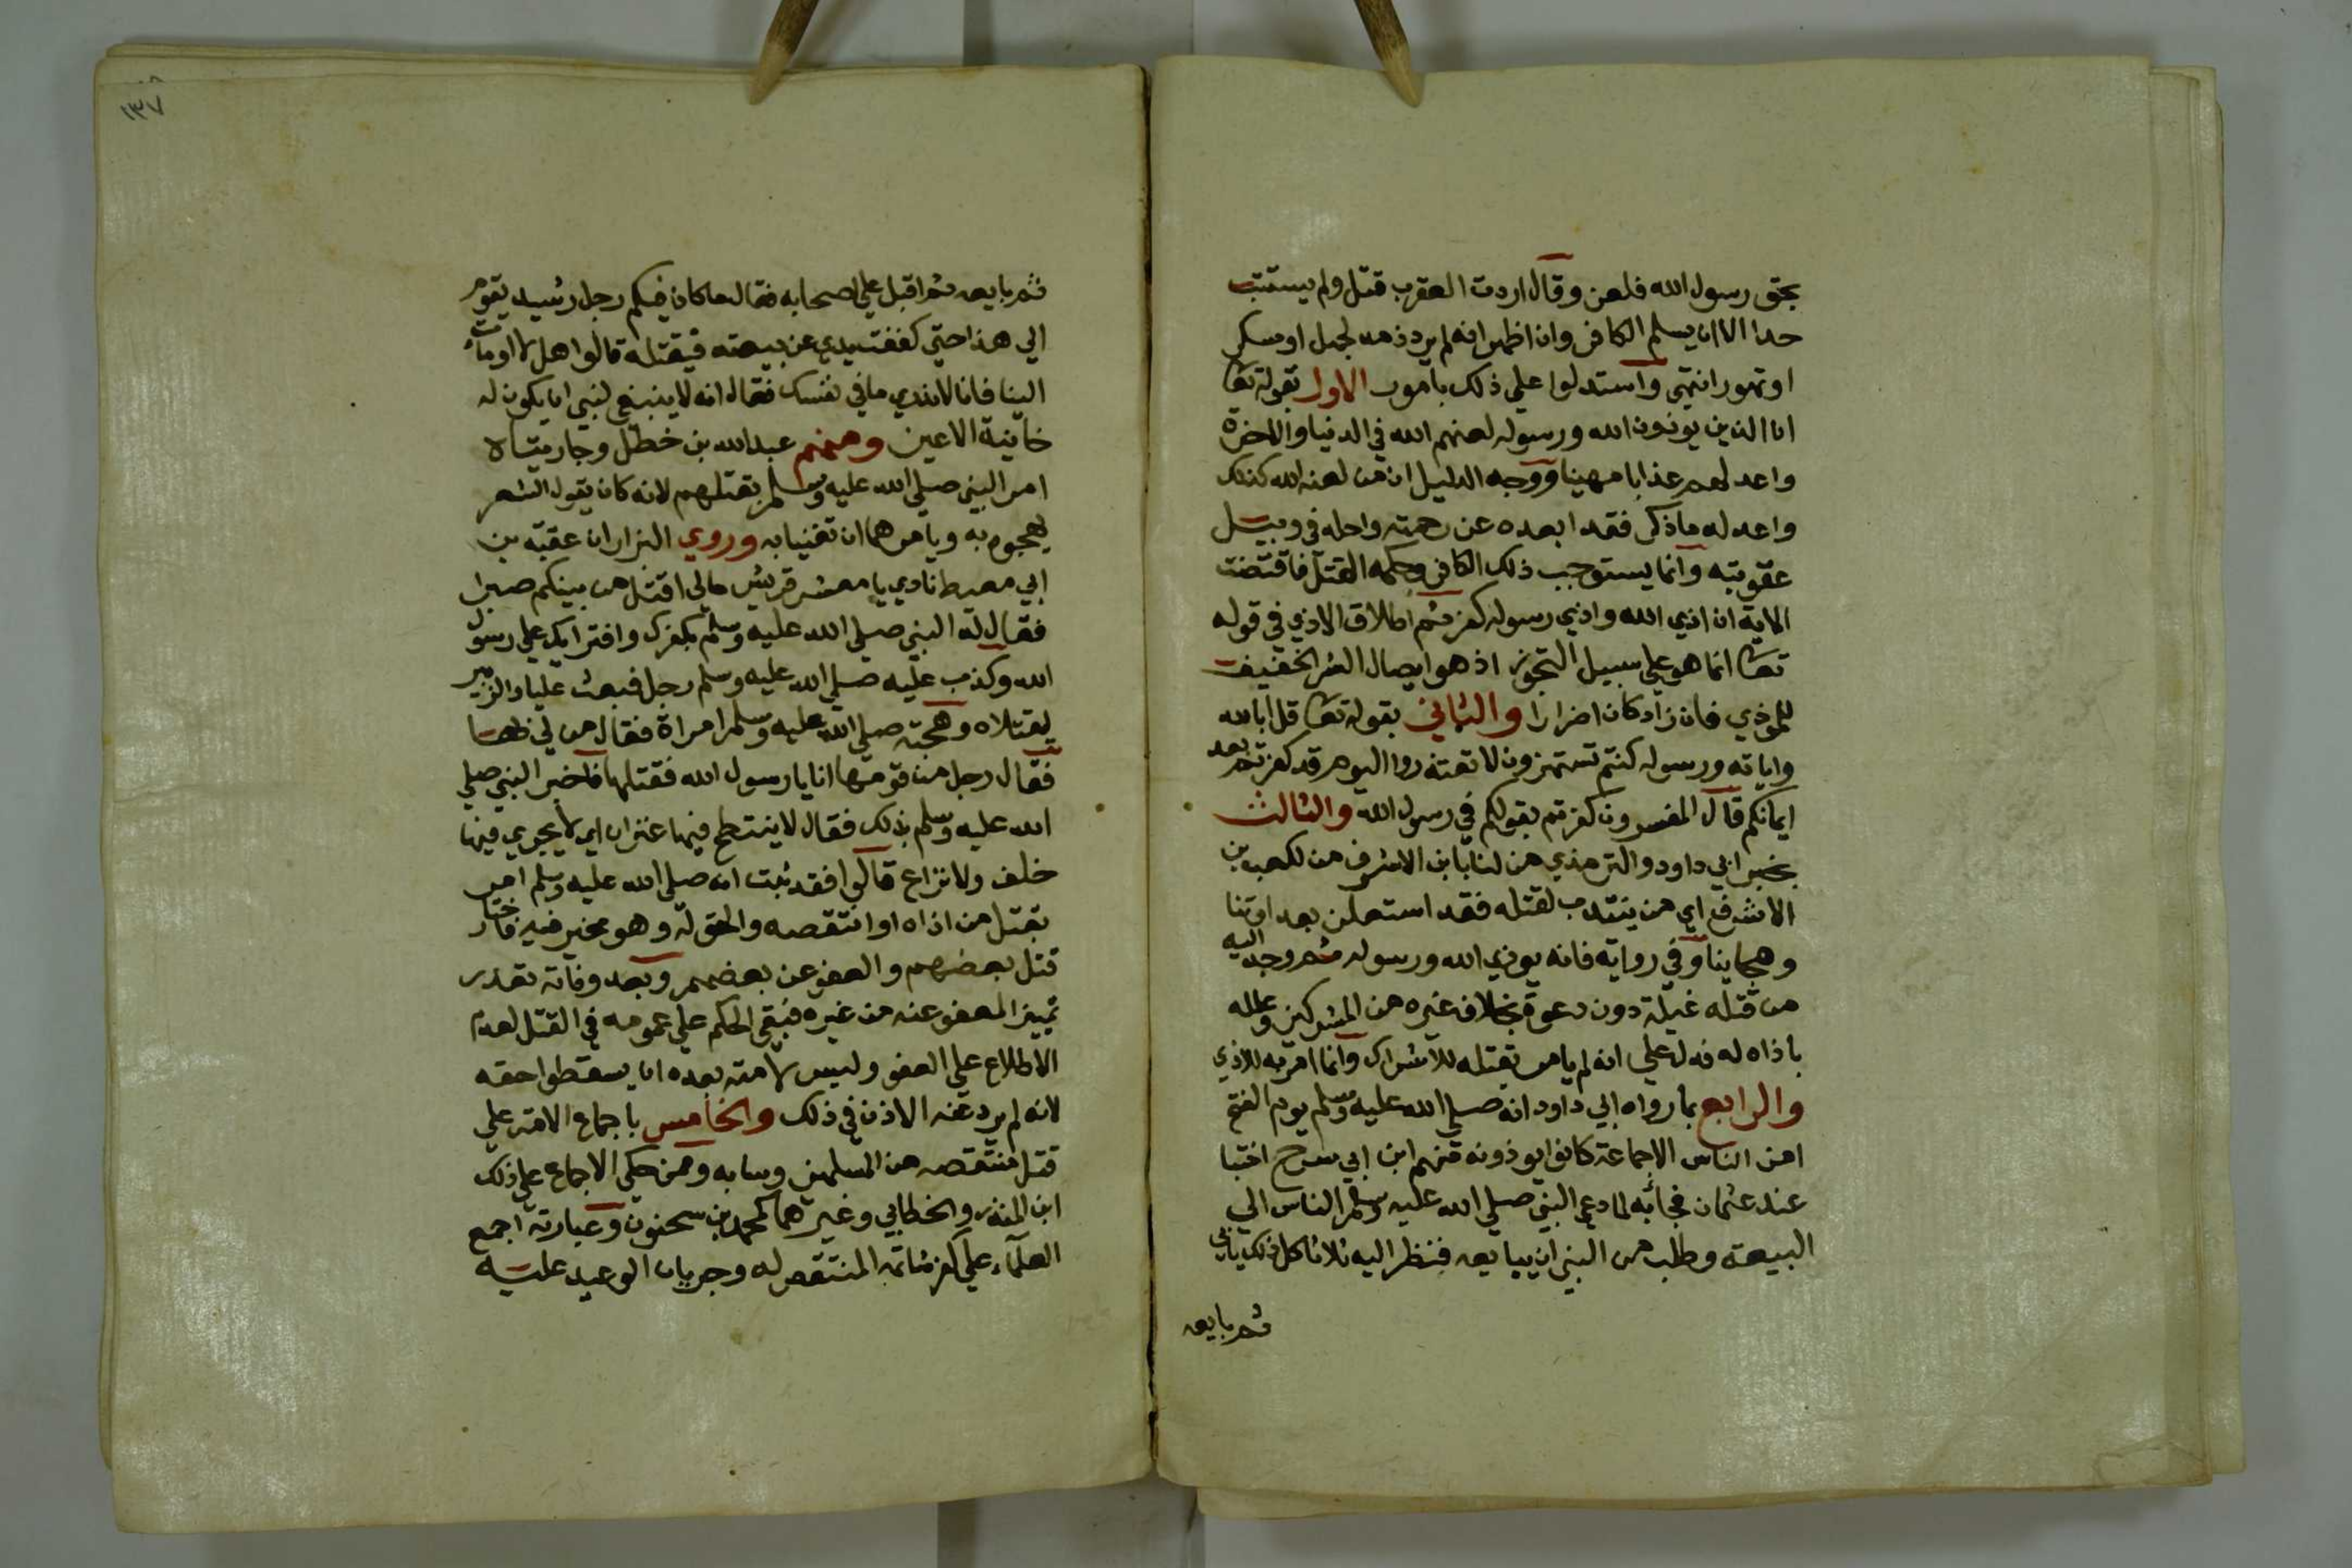 بحق رسول الله فلعن وقال اردت العقرب قتل ولم يستتب
حدا الا ان يسلم الكافر وان اظهر انه لم يرد ذمه لجهل او سكر
او تهور انتهى واستدلوا على ذلك بامور الاول بقوله تعا
ان الذين يوذون الله ورسوله لعنهم الله في الدنيا والاخرة
واعد لهم عذابا مهينا ووجه الدليل ان من لعنه الله كذلك
واعد له ما ذكر فقد ابعده عن رحمته واحله في وبيل
عقوبته وانما يستوجب ذلك الكافر وحكمه القتل فاقتضت
الاية ان اذي الله واذي رسوله كفر ثم اطلاق الاذي في قوله
تعا انما هو علي سبيل التجوز اذ هو ايصال الضر الخفيف
للموذي فان زاد كان اضرارا والثاني بقوله تعا قل ابالله
واياته ورسوله كنتم تستهزون لا تعتذروا اليوم قد كفرتم بعد
ايمانكم قال المفسرون كفرتم بقولكم في رسول الله والثالث
بخبر ابي داود والترمذي من لنا بابن الاشرف من لكعب بن
الاشرف اي من ينتدب لقتله فقد استعلن بعداوتنا
وهجاينا وفي رواية فانه يوذي الله ورسوله ثم وجه اليه
من قتله غيلة دون دعوة بخلاف غيره من المشركين وعلله
باذاه له فدل علي انه لم يامر بقتله للاشراك وانما امر به للاذي
والرابع بما رواه ابي داود انه صلي الله عليه وسلم يوم الفتح
امن الناس الا جماعة كانوا يوذونه منهم ابن ابي سرح اختبا
عند عثمان فجائه لما دعي النبي صلي الله عليه وسلم الناس الي
البيعة وطلب من النبي ان يبايعه فنظر اليه ثلاثا كل ذلك يابي
ثم بايعه
١٣٧
ثم بايعه ثم اقبل علي اصحابه فقال ما كان فيكم رجل رشيد يقوم
الي هذا حتي كففت يدي عن بيعته فيقتله قالوا هل لا اومات
الينا فانا لا ندري ما في نفسك فقال انه لا ينبغي لنبي ان يكون له
خاينة الاعين ومنهم عبد الله بن خطل وجاريتاه
امر النبي صلي الله عليه وسلم بقتلهم لانه كان يقول الشعر
يهجوه به ويامرهما ان تغنيا به وروي البزار ان عقبة بن
ابي معيط نادي يا معشر قريش مالي اقتل من بينكم صبرا
فقال له النبي صلي الله عليه وسلم بكفرك وافترايك علي رسول
الله وكذب عليه صلي الله عليه وسلم رجل فبعث عليا والزبير
ليقتلاه وهجته صلي الله عليه وسلم امراة فقال من لي بها
فقال رجل من قومها انا يا رسول الله فقتلها فاخبر النبي صلي
الله عليه وسلم بذلك فقال لا ينتطح فيها عنزان اي لا يجري فيها
خلف ولا نزاع قالوا فقد ثبت انه صلي الله عليه وسلم امر
بقتل من اذاه او انتقصه والحق له وهو مخير فيه فاختار
قتل بعضهم والعفو عن بعضهم وبعد وفاته تعذر
تمييز المعفو عنه من غيره فبقي الحكم علي عمومه في القتل لعدم
الاطلاع علي العفو وليس لامته بعده ان يسقطوا حقه
لانه لم يرد عنه الاذن في ذلك والخامس باجماع الامة علي
قتل منتقصه من المسلمين وسابه وممن حكي الاجماع علي ذلك
ابن المنذر والخطابي وغيرهما كمحمد بن سحنون وعبارته اجمع
العلماء علي كفر شاتمه المنتقص له وجريان الوعيد عليه